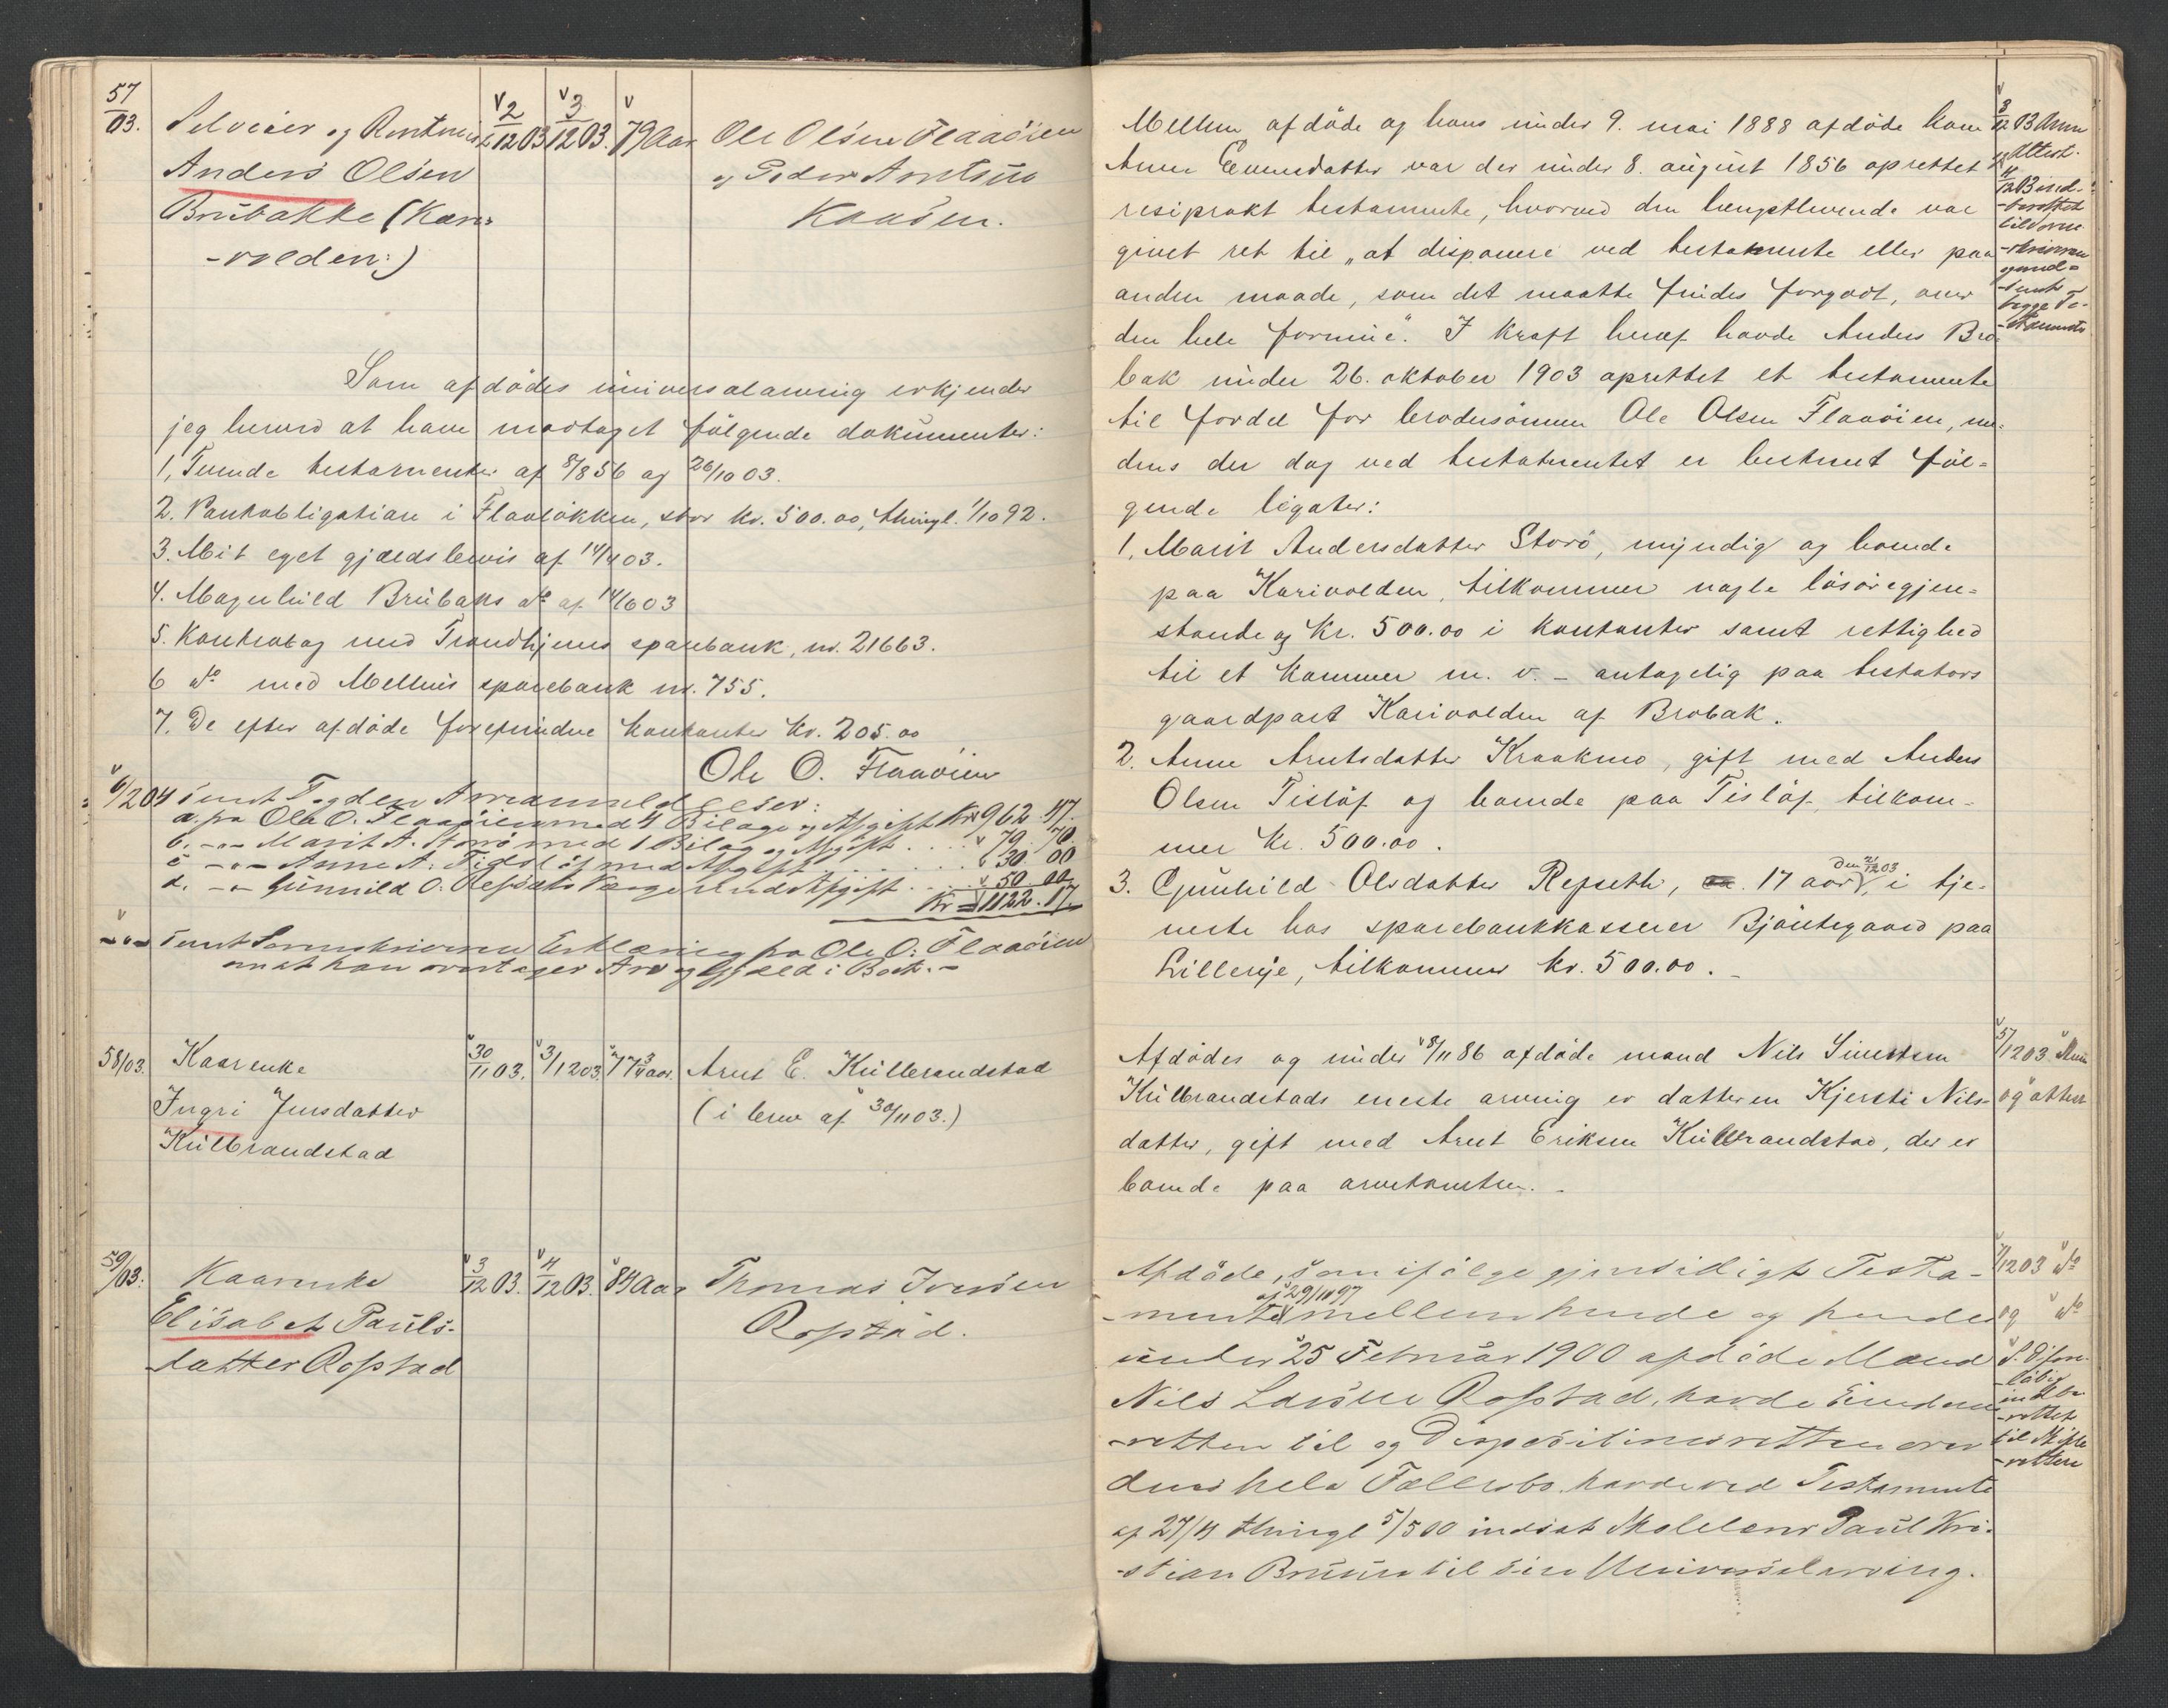 57/03.
Selveier og
Anders Olsen
Brubakke (Kari-
-volden:)
2/12 03
3/12 03.
79 Aar
Ole Olsen Flaaöien
og Peder Arntsen
Kaasen.
Som afdödes universalarving erkjender
jeg herved at have modtaget fölgende dokumenter:
1, Tvende testamenter af 8/8 56 og 26/10 03.
2. Pantobligation i Flaalökken, stor kr. 500.00, thingl. 1/10 92.
3. Mit eget gjældsbevis af 14/4 03.
4. Magnhild Brubaks do af 14/6 03
5. Kontrabog med Trondhjems sparebank, nr. 21663.
6 do med Melhus sparebank nr. 755.
7. De efter afdöde forefundne kontanter kr. 205.00
Ole O. Flaaöien
6/2 04 sendt Fogden Arveanmeldelser:
a. fra Ole O. Flaaöien med 4 Bilage og Afgift Kr 962.47.
b. -"- Marit A. Storö med 1 Bilag og Afgift .... 79.70.
c. -"- Anne A. Tislöf med Afgift ....... 30.00
d. -"- Gunnild O. Refsets Værge med Afgift .... 50.00
Kr = 1122.17.
-"- sendt Sorenskriveren Erklæring fra Ole O. Flaaöien
om at han overtager Arv og Gjæld i Boet. -
58/03.
Kaarenke
Ingri Jensdatter
Kulbrandstad
30/11 03.
3/12 03.
77 3/4 aar.
Arnt E. Kulbrandstad
(i brev af 30/11 03.)
59/03.
Kaarenke
Elisabet Pauls-
datter Rofstad
3/12 03.
4/12 03.
84 Aar
Thomas Iversen
Rofstad.
Mellem afdöde og hans under 9. mai 1888 afdöde kone
Anne Evensdatter var der under 8. august 1856 oprettet
resiprokt testamente, hvorved den længstlevende var
givet ret til „at disponere ved testamente eller paa
anden maade, som det maatte findes forgodt, over
den hele formue". I kraft heraf havde Anders Bro-
bak under 26. oktober 1903 oprettet et testamente
til fordel for brodersönnen Ole Olsen Flaaöien, me-
dens der dog ved testamentet er bestemt föl-
gende legater:
1, Marit Andersdatter Storö, myndig og boende
paa Karivolden, tilkommer nogle lösöregjen-
stande og kr. 500.00 i kontanter samt rettighed
til et kammer m. v. - antagelig paa testators
gaardpart Karivolden af Brobak.
2. Anne Arntsdatter Kraakmo, gift med Anders
Olsen Tislöf og boende paa Tislöf, tilkom-
mer kr. 500.00.
3. Gunhild Olsdatter Refseth, 17 aar den 21/12 03, i tje-
neste hos sparebankkasserer Bjöntegaard paa
Lillerye, tilkommer kr. 500.00. -
Afdödes og under 8/11 86 afdöde mand Nils Simonsen
Kulbrandstads eneste arving er datteren Kjersti Nils-
datter, gift med Arnt Eriksen Kulbrandstad, der er
boende paa arvetomten. -
Afdöde, som ifölge gjensidigt Testa-
-mente af 29/11 97 mellem hende og hendes
under 25 Februar 1900 afdöde Mand
Nils Larsen Rofstad, havde Eiendoms
-retten til og Dispositionsretten over
deres hele Fællesbo, havde ved Testamente
af 27/4 thingl 5/5 00 indsat Skolelærer Paul Kri-
-stian Bruun til sin Universalarving.
3/12 03 Anm
og Attest.
11/12 03 ind-
-berettet
til Soren
-skriveren
og med-
-sendt
begge Te-
-stamenter
5/12 03 Anm
og attest
7/12 03 do
og do
S. D. fore-
-löbig
indbe-
-rettet
til Skifte
-retten